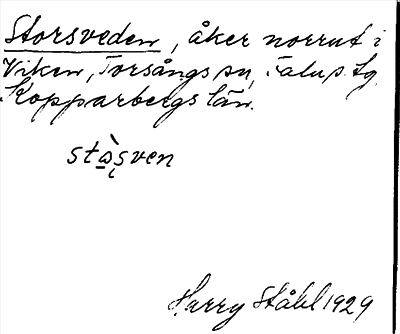 Storsveden, åker norrut i
Viken, Torsångs sn, Falu s. lg.
Kopparbergs län.
stàsven
Harry Ståhl 1929